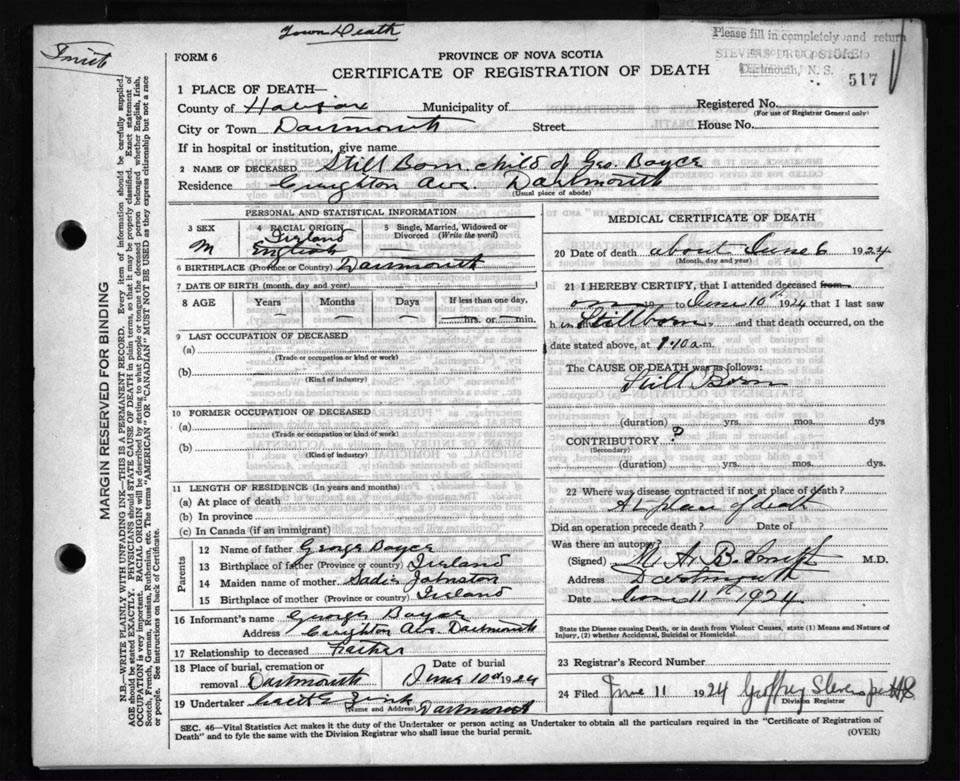 Town Death
Please fill in completely and return
STEVENS DRUG STORE
Dartmouth, N. S.
517
Smith
FORM 6
PROVINCE OF NOVA SCOTIA
CERTIFICATE OF REGISTRATION OF DEATH
1 PLACE OF DEATH—
County of Halifax Municipality of Registered No.
(For use of Registrar General only)
City or Town Dartmouth Street House No.
If in hospital or institution, give name
2 NAME OF DECEASED Still Born child of Geo. Boyce
Residence Creighton Ave. Dartmouth
(Usual place of abode)
PERSONAL AND STATISTICAL INFORMATION
3 SEX 4 RACIAL ORIGIN 5 Single, Married, Widowed or Divorced (Write the word)
M Ireland
English
6 BIRTHPLACE (Province or Country) Dartmouth
7 DATE OF BIRTH (month, day and year)
8 AGE Years Months Days If less than one day,
— — — hrs. or min.
9 LAST OCCUPATION OF DECEASED
(a)
(Trade or occupation or kind or work)
(b)
(Kind of industry)
10 FORMER OCCUPATION OF DECEASED
(a)
(Trade or occupation or kind of work)
(b)
(Kind of industry)
11 LENGTH OF RESIDENCE (In years and months)
(a) At place of death
(b) In province
(c) In Canada (if an immigrant)
Parents
12 Name of father George Boyce
13 Birthplace of father (Province or country) Ireland
14 Maiden name of mother Sadie Johnston
15 Birthplace of mother (Province or country) Ireland
16 Informant's name George Boyce
Address Creighton Ave. Dartmouth
17 Relationship to deceased Father
18 Place of burial, cremation or removal Dartmouth Date of burial June 10th 1924
19 Undertaker Zink Dartmouth
(Name and Address)
MEDICAL CERTIFICATE OF DEATH
20 Date of death about June 6 1924
(Month, day and year)
21 I HEREBY CERTIFY, that I attended deceased from
on 19 to June 10th 1924 that I last saw
h Stillborn, and that death occurred, on the
date stated above, at 9.10 a.m.
The CAUSE OF DEATH was as follows:
Still Born
(duration) yrs. mos. dys
CONTRIBUTORY ?
(Secondary)
(duration) yrs. mos. dys.
22 Where was disease contracted if not at place of death?
At place of death
Did an operation precede death? Date of
Was there an autopsy?
(Signed) M. A. B. Smith M.D.
Address Dartmouth
Date June 11th 1924
State the Disease causing Death, or in death from Violent Causes, state (1) Means and Nature of Injury, (2) whether Accidental, Suicidal or Homicidal.
23 Registrar's Record Number
24 Filed June 11 1924 Geoffrey Stevens per HS
Division Registrar
SEC. 46—Vital Statistics Act makes it the duty of the Undertaker or person acting as Undertaker to obtain all the particulars required in the "Certificate of Registration of
Death" and to fyle the same with the Division Registrar who shall issue the burial permit.
(OVER)
MARGIN RESERVED FOR BINDING
N.B.—WRITE PLAINLY WITH UNFADING INK—THIS IS A PERMANENT RECORD. Every item of information should be carefully supplied.
AGE should be stated EXACTLY. PHYSICIANS should STATE CAUSE OF DEATH in plain terms, so that it may be properly classified. Exact statement of
OCCUPATION is very important. RACIAL ORIGIN will be described by stating to what people or tongue the deceased person belonged whether English, Irish,
Scotch, French, German, Russian, Ruthenian, etc. The terms "AMERICAN" OR "CANADIAN" MUST NOT BE USED as they express citizenship but not a race
or people. See instructions on back of Certificate.